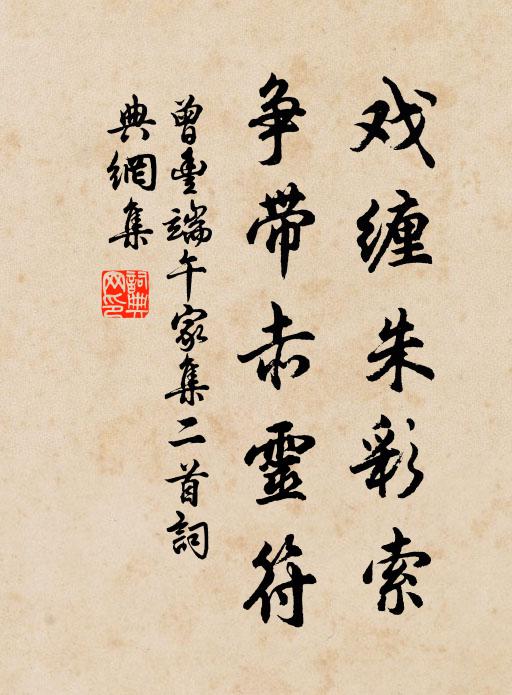 戏缠朱彩索
争带赤靈符
曾豊端午家集二首詞
典網集
詞典网印